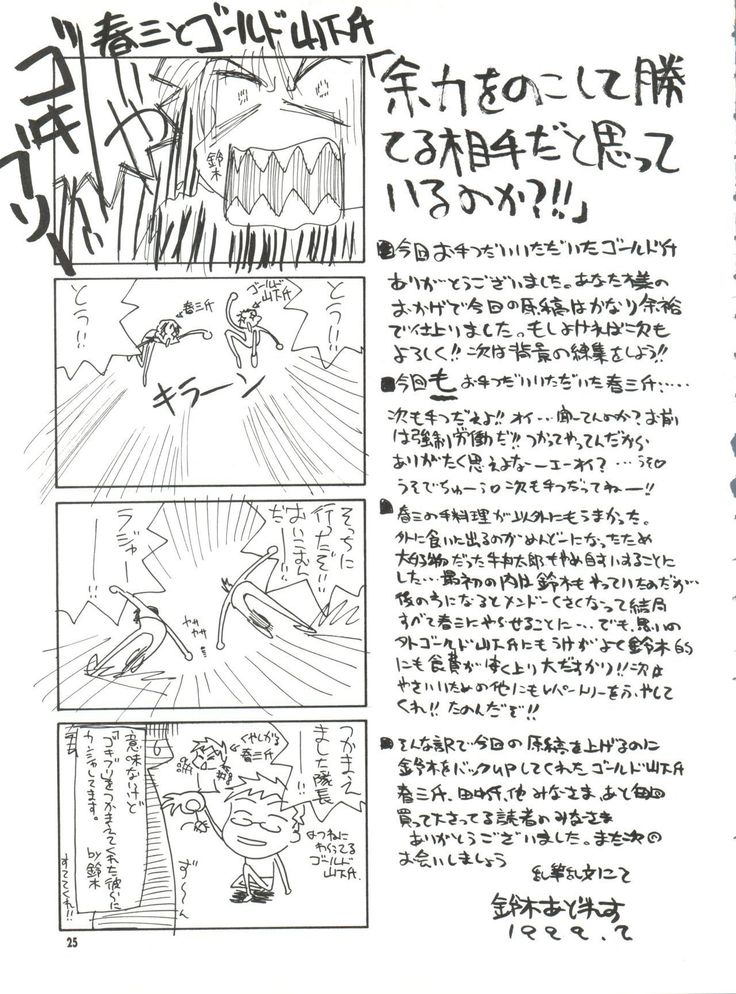 春三とゴールド山下氏
ゴキブリー
いやー
鈴木
とうっ!!
春三氏
ゴールド山下氏
とうっ!!
キラーン
そっちに
行ったぞ!!
おいこむん
だ!!
ラジャー!!
ササササ
つかまえ
ました隊長
!!
くやしがる
春三氏
ゴールド
山下氏
ず〜ん
意味ないけど
ゴキブリをつかまえてくれた彼らに
カンシャしてます。
by鈴木
すててくれ!!
25
「余力をのこして勝
てる相手だと思って
いるのか?!!」
今回お手つだいいただいたゴールド氏
ありがとうございました。あなた様の
おかげで今回の原稿はかなり余裕
で仕上りました。もしよければ次も
よろしく!!次は背景の練集をしよう!!
今回も お手つだいいただいた春三氏……
次も手つだえよ!!オイ…聞ーてんのか?お前
は強制労働だ!!つかってやってんだから
ありがたく思えよなーエーオイ?…うそ○
うそでちゅー○次も手つだってねー!!
春三の手料理が以外にもうまかった。
外に食いに出るのがめんどーになったため
大好物だった牛丼太郎もやめ自すいすることに
した…最初の内は鈴木もやっていたのだが…
後の方になるとメンドーくさくなって結局
すべて春三にやらせることに…でも、思いの
外ゴールド山下氏にもうけがよく鈴木的
にも食費がはくより大だすかり!!次は
やさいいための他にもレパートリーをふやして
くれ!!たのんだぞ!!
そんな訳で今回の原稿を上げるのに
鈴木をバックUPしてくれたゴールド山下氏
春三氏、田中氏、他みなさま、あと毎回
買って下さってる読者のみなさま
ありがとうございました。また次の
お会いしましょう
乱筆乱文にて
鈴木あどれす
1999.2